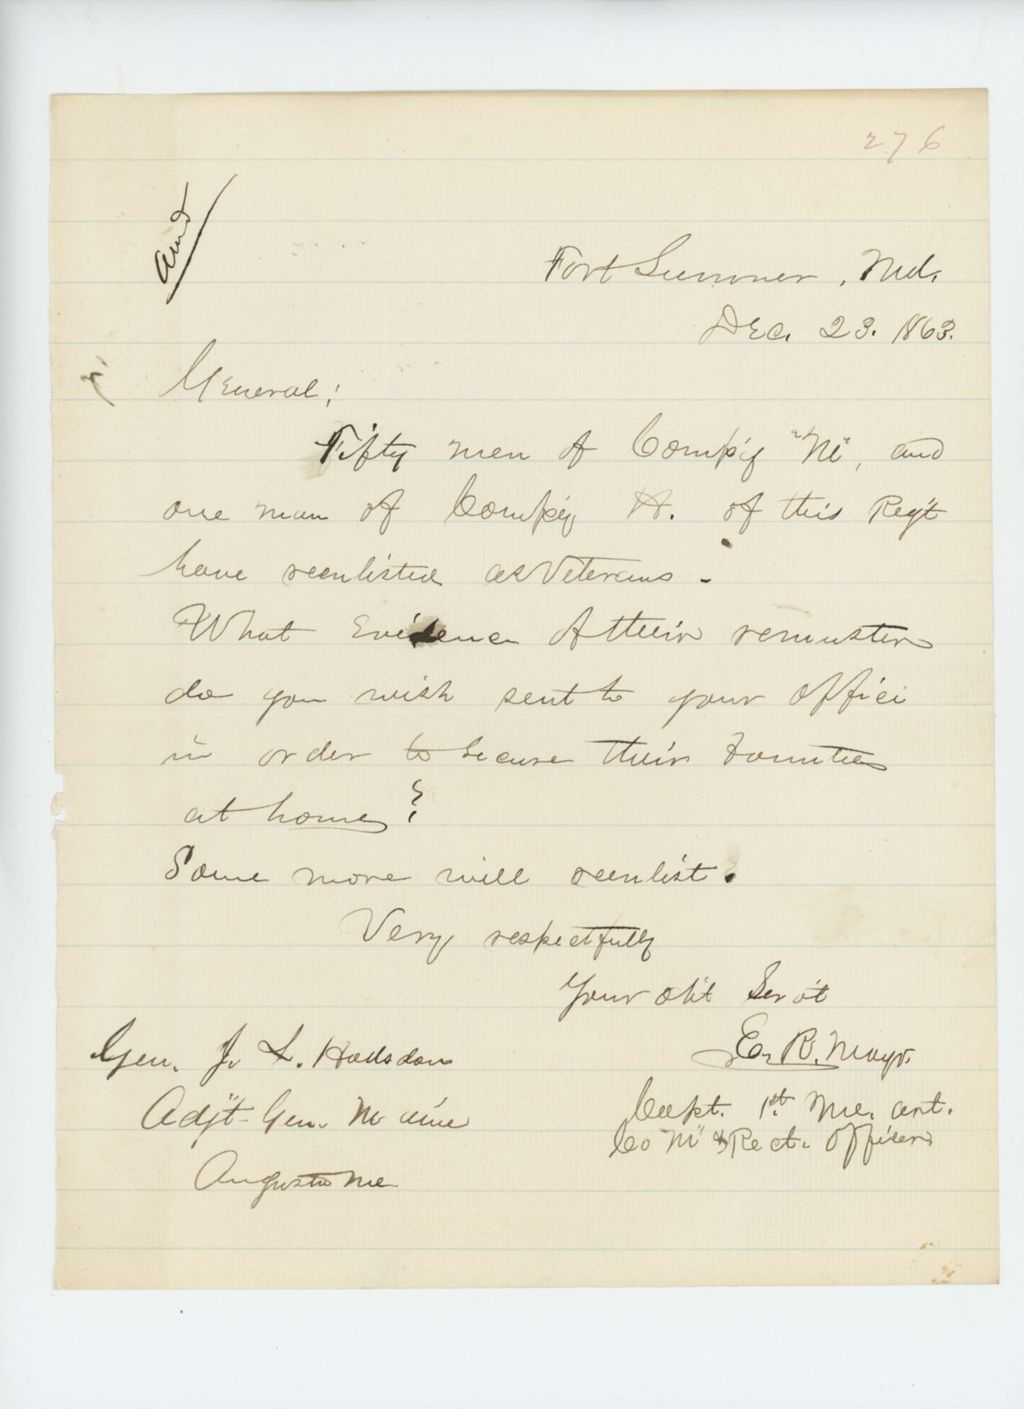 276
Fort Sumner, Md.
Dec. 23. 1863.
General;
Fifty men of Comp'y "M", and
one man of Comp'y A. of this Reg't
have reenlisted as Veterans.
What Evidence of their remuster
do you wish sent to your office
in order to secure their bounties
at home?
Some more will reenlist.
Very respectfully
Your ob't Serv't
E. R. Mayo.
Capt. 1st. Me. art.
Co "M" & Rect. Officer
Gen. J. L. Hodsdon
Adj't-Gen. Maine
Augusta Me